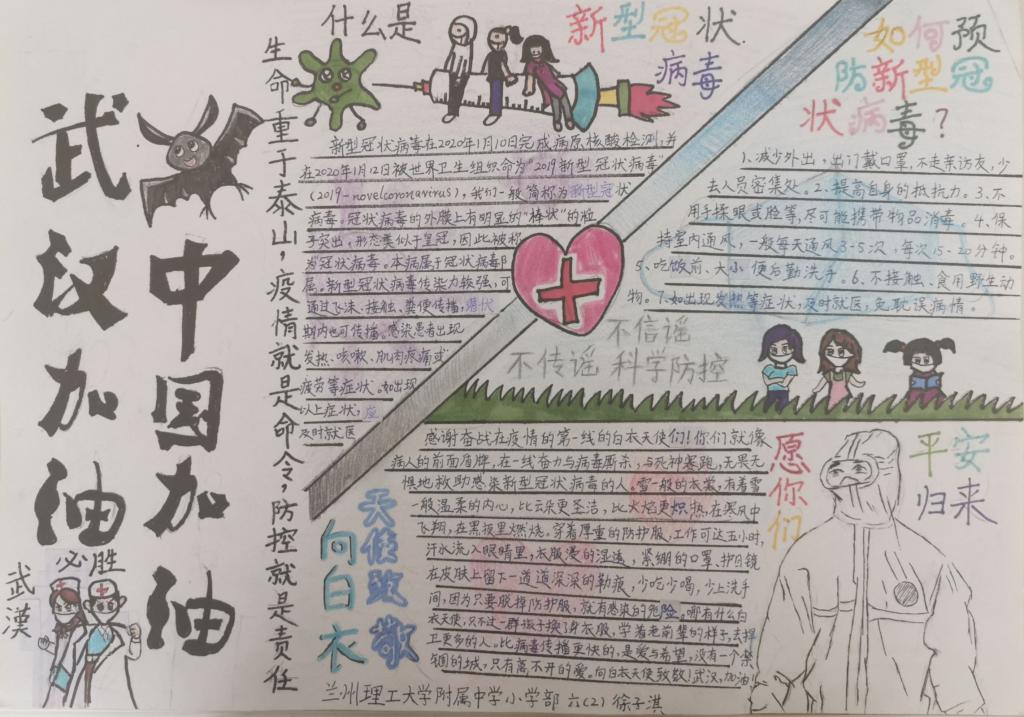 武汉加油
中国加油
武漢
必胜
生命重于泰山，疫情就是命令，防控就是责任
什么是
新型冠状
病毒
新型冠状病毒在2020年1月10日完成病原核酸检测,并
在2020年1月12日被世界卫生组织命为"2019新型冠状病毒"
(2019-novelcoronavirus)，我们一般简称为新型冠状
病毒。冠状病毒的外膜上有明显的"棒状"的粒
子突出，形态类似于皇冠，因此被称
为冠状病毒。本病属于冠状病毒β
属。新型冠状病毒传染力较强，可
通过飞沫、接触、粪便传播，潜伏
期内也可传播。感染患者出现
发热、咳嗽、肌肉疼痛或
疲劳等症状。如出现
以上症状，应
及时就医
如何预
防新型冠
状病毒？
1、减少外出，出门戴口罩，不走亲访友，少
去人员密集处。2、提高自身的抵抗力。3、不
用手揉眼或脸等，尽可能携带物品消毒。4、保
持室内通风，一般每天通风3-5次，每次15-20分钟。
5、吃饭前、大小便后勤洗手。6、不接触、食用野生动
物。7、如出现发热等症状，及时就医，免耽误病情。
不信谣
不传谣 科学防控
向白衣
天使致敬
感谢奋战在疫情的第一线的白衣天使们！你们就像
病人的前面盾牌，在一线奋力与病毒厮杀，与死神赛跑，无畏无
惧地救助感染新型冠状病毒的人。雪一般的衣裳，有着雪
一般温柔的内心，比云朵更圣洁，比火焰更炽热，在寒风中
飞翔，在黑夜里燃烧。穿着厚重的防护服，工作可达五小时，
汗水流入眼睛里，衣服浸的湿透，紧绷的口罩、护目镜
在皮肤上留下一道道深深的勒痕，少吃少喝，少上洗手
间，因为只要脱掉防护服，就有感染的危险。哪有什么白
衣天使，只不过一群孩子换了身衣服，学着老前辈的样子，去捍
卫更多的人。比病毒传播更快的，是爱与希望，没有一个禁
锢的城，只有离不开的爱。向白衣天使致敬！武汉，加油！！
愿你们
平安
归来
兰州理工大学附属中学小学部 六(2) 徐子淇